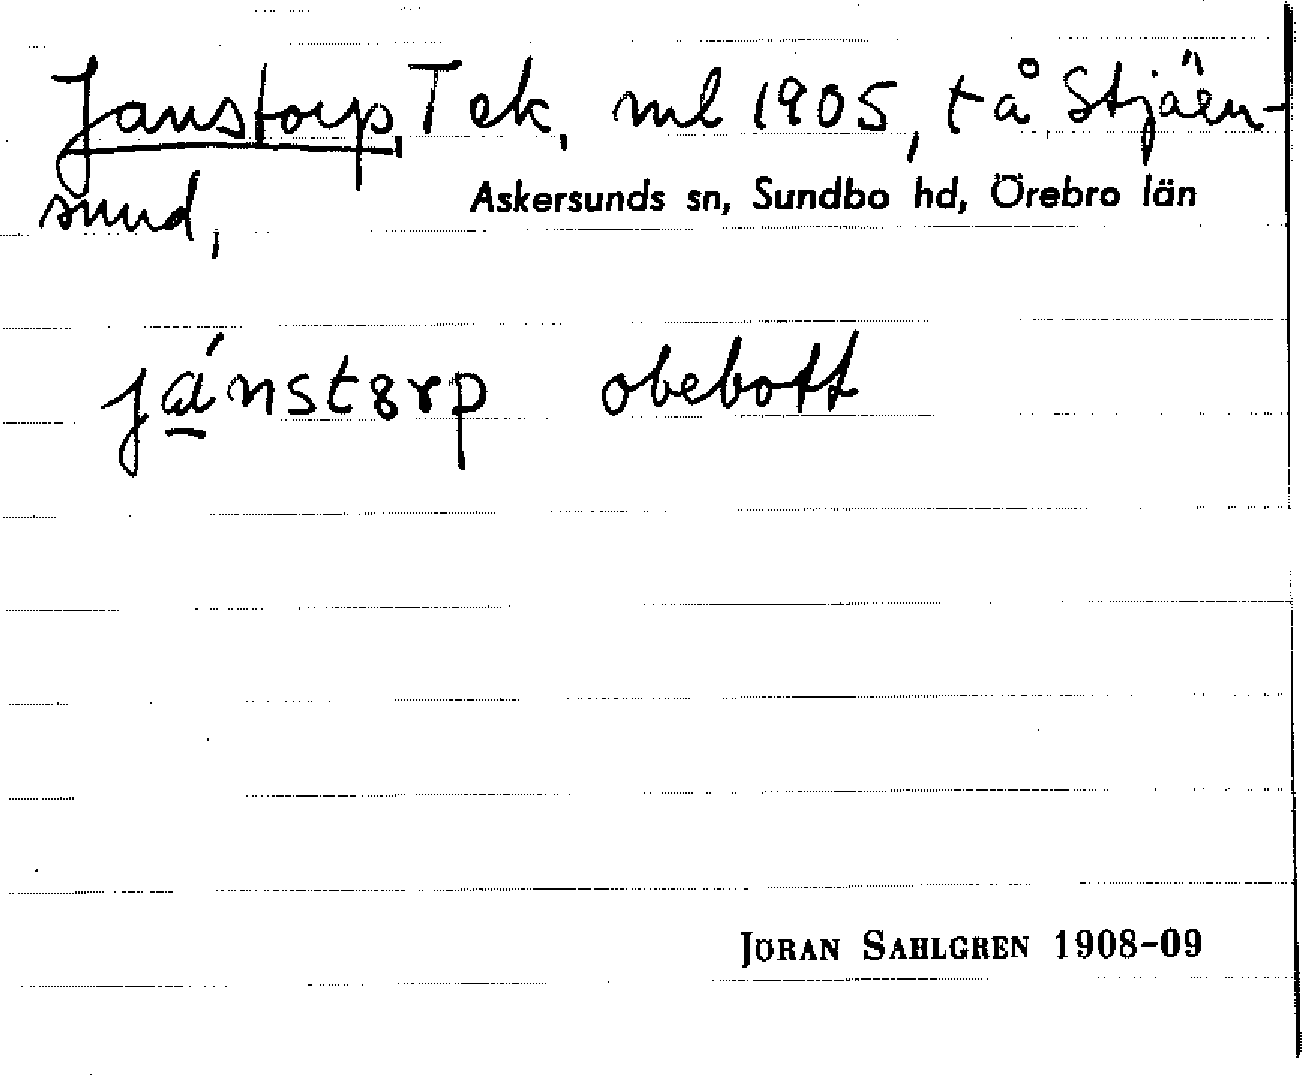 Janstorp, T ek, ml 1905, t å Stjärn-
sund,
Askersunds sn, Sundbo hd, Örebro län
jánstɜrp obebott
JÖRAN SAHLGREN 1908-09